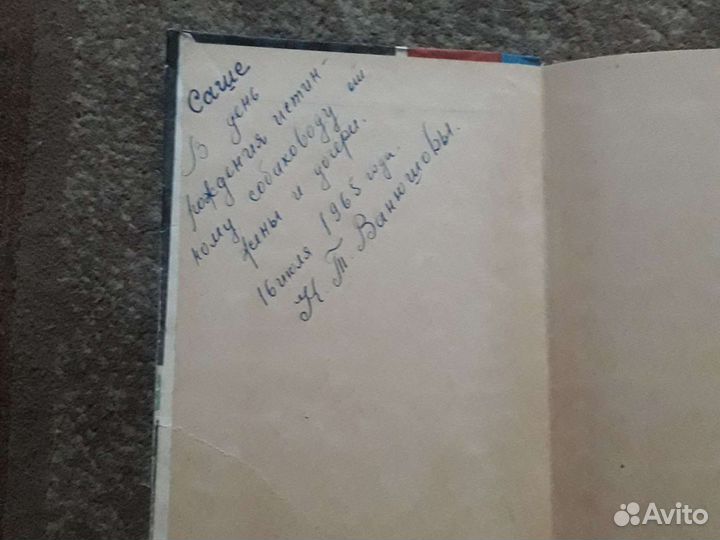 Саше
В день
рождения истин-
ному собаководу от
жены и дочери.
16 июля 1965 года.
К. Т. Ванюшовы.
Avito